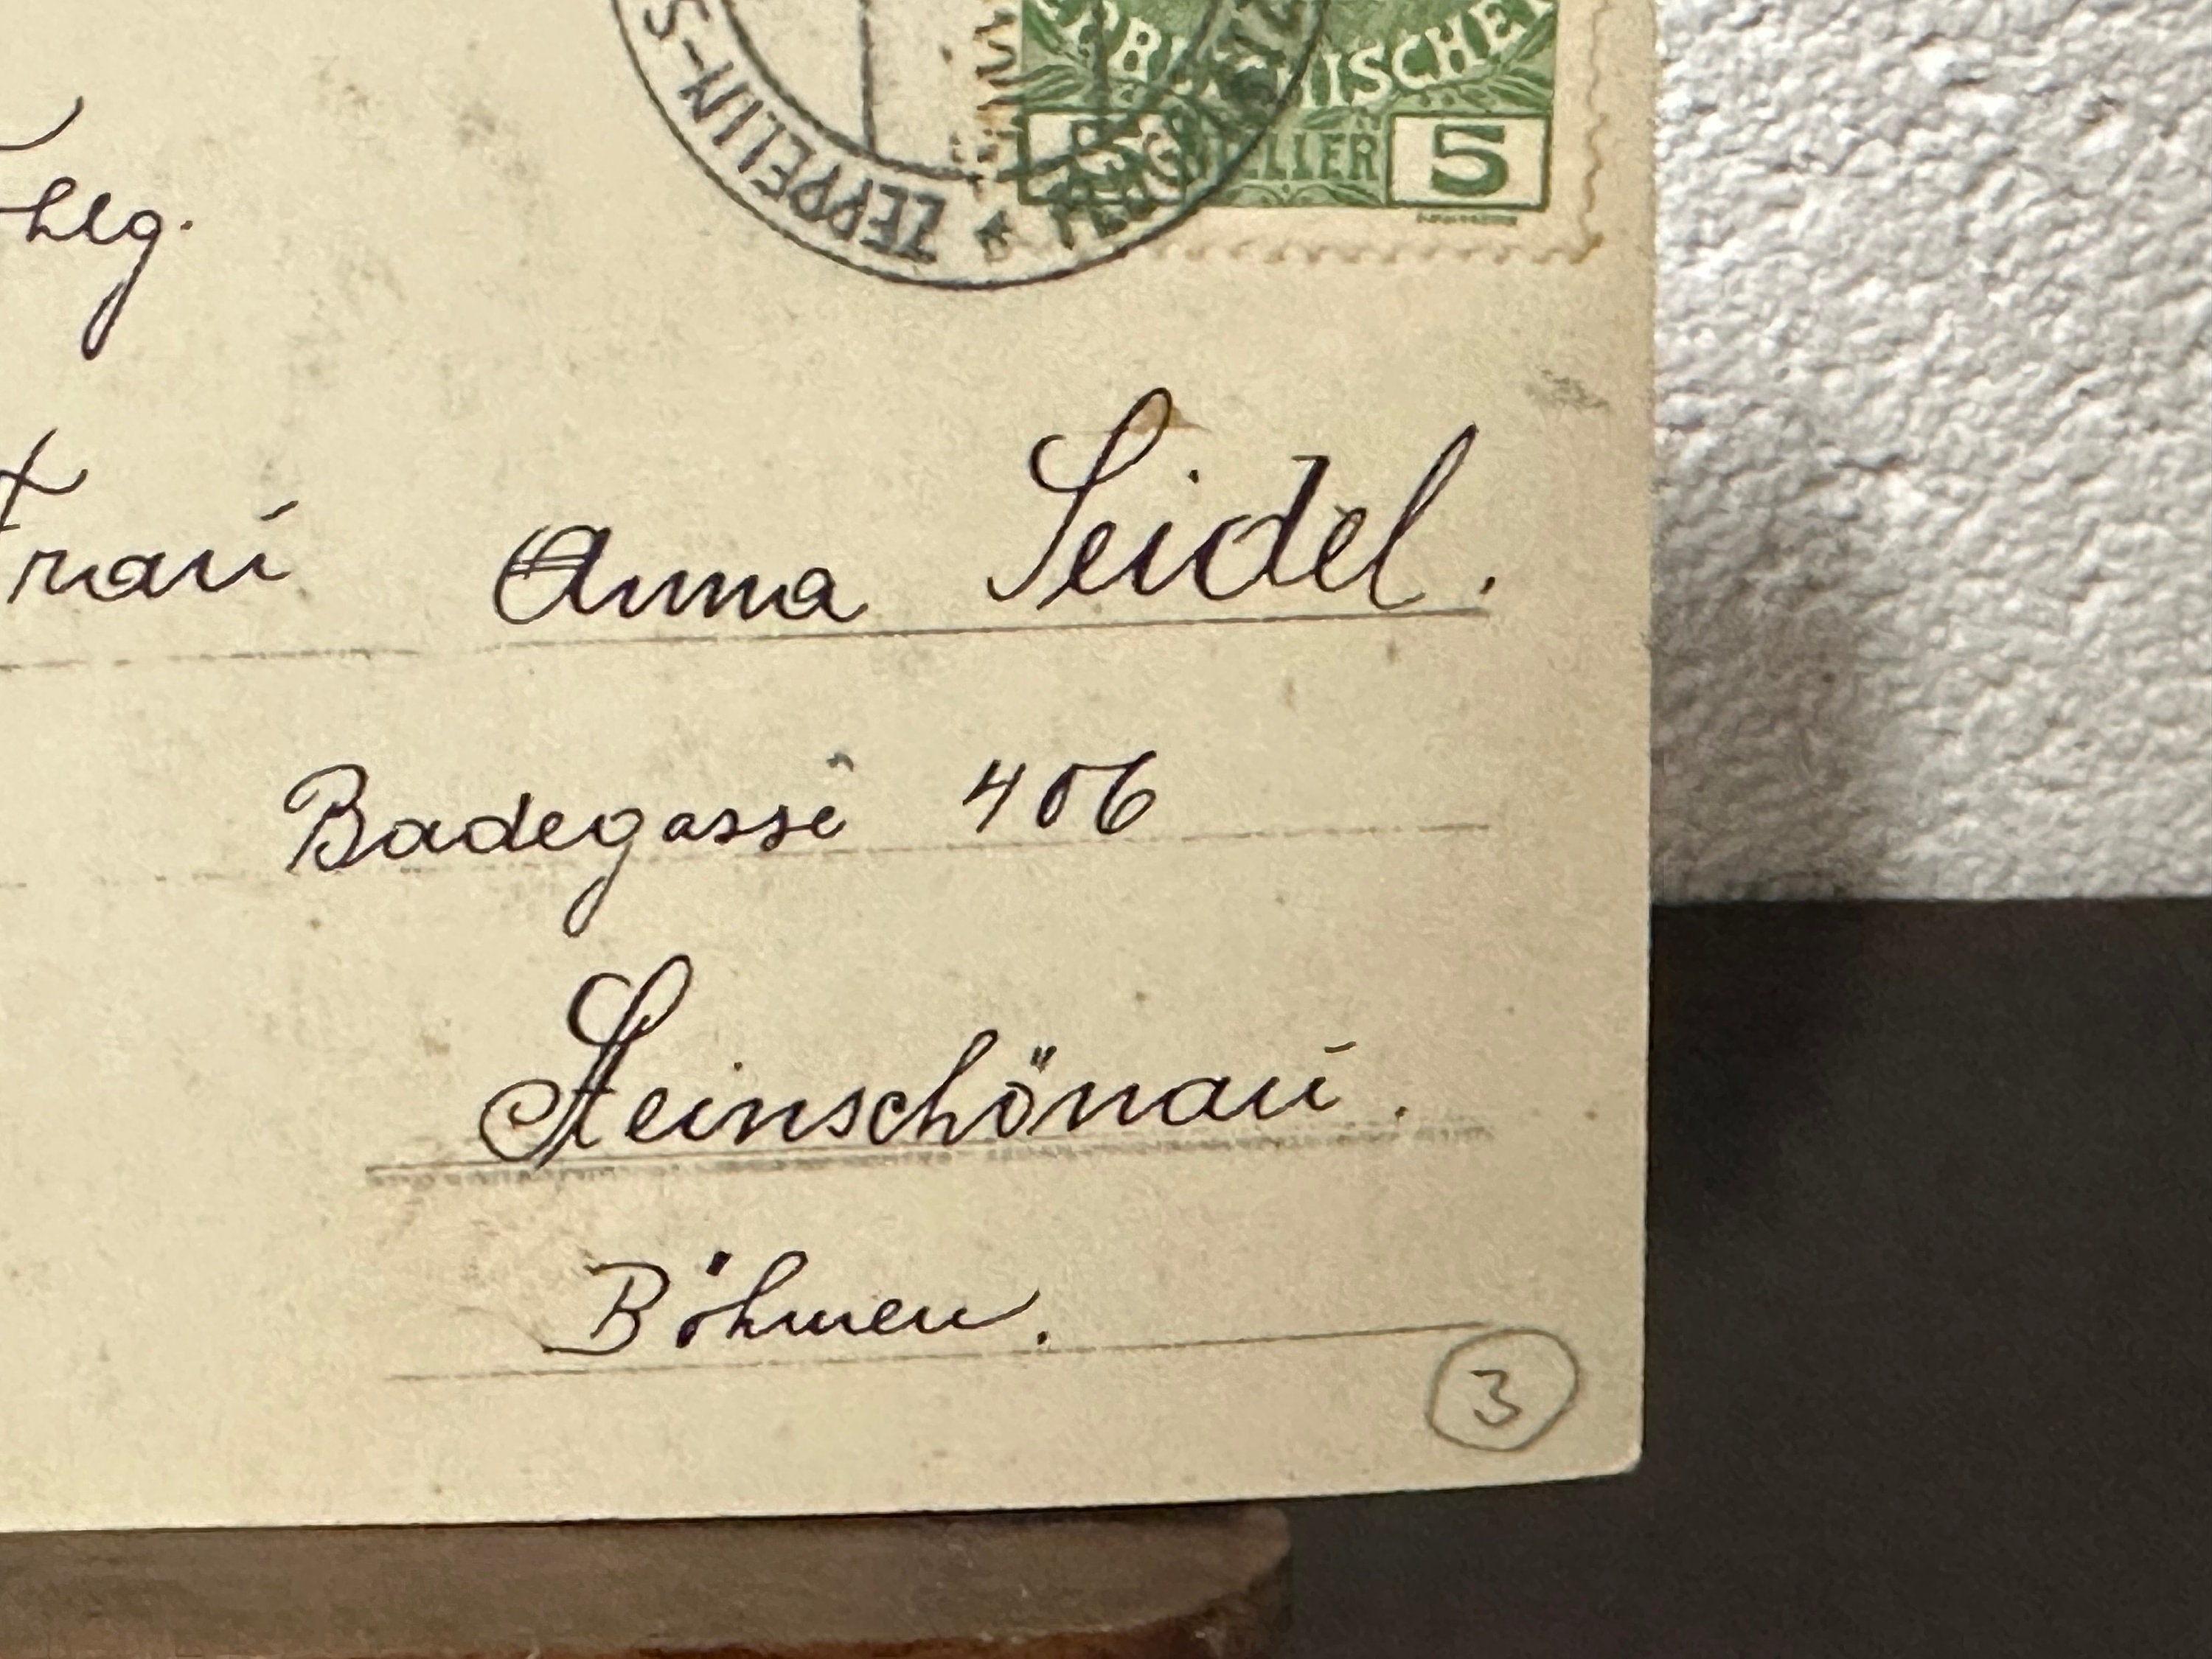 ZEPPELIN-S
5 HELLER 5
hlg.
Frau Anna Seidel.
Badegasse 406
Steinschönau.
Böhmen.
3